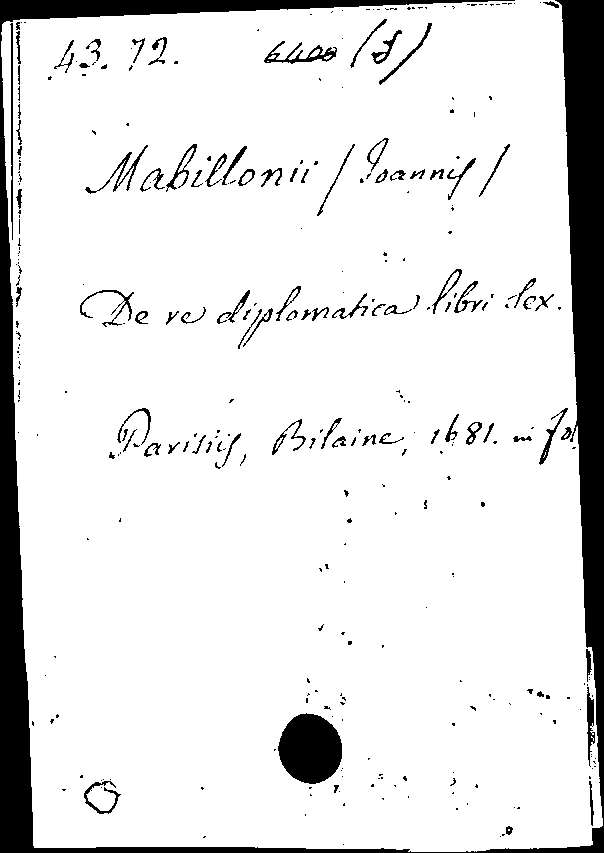 43. 72. 6400 (J)
Mabillonii / Joannis /
De re diplomatica libri sex.
Parisiis, Bilaine, 1681. in fol.